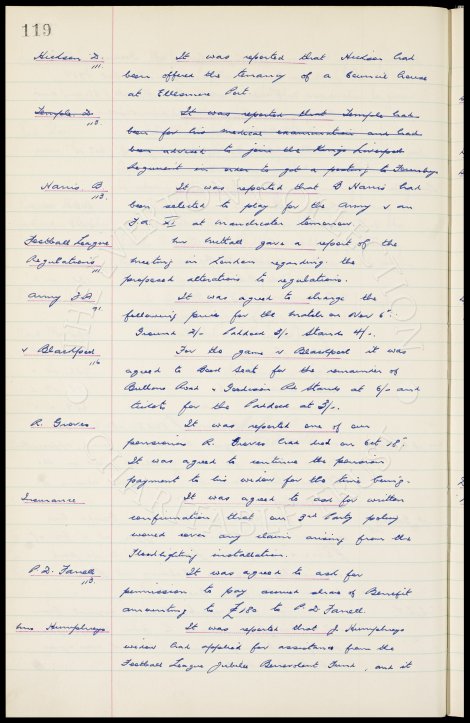 119
Hickson D. It was reported that Hickson had
111. been offered the tenancy of a Council house
at Ellesmere Port
Temple D. It was reported that Temple had
113 been for his medical examination and had
been advised to join the Kings Liverpool
Regiment in order to get a posting to Formby.
Harris B It was reported that B Harris had
113. been selected to play for the Army v an
F.A. XI at Manchester tomorrow
Football League gave a report of the
Regulations meeting in London regarding the
111 proposed alterations to regulations.
Army F.A It was agreed to charge the
91. following prices for the match on Nov 6th.
Ground 2/- Paddock 3/- Stands 4/-.
v Blackpool For the game v Blackpool it was
116 agreed to book seats for the remainder of
Bullens Road & Goodison Rd Stands at 6/- and
tickets for the Paddock at 3/-.
R. Groves. It was reported one of our
pensioners R. Groves had died on Oct 18th.
It was agreed to continue the pension
payment to his widow for the time being.
Insurance. It was agreed to ask for written
confirmation that our 3rd Party policy
would cover any claims arising from the
Floodlighting installation.
P. D. Farrell It was agreed to ask for
113. permission to pay accrued share of Benefit
amounting to £180 to P. D Farrell.
Mrs Humphreys It was reported that J. Humphreys
widow had applied for assistance from the
Football League Jubilee Benevolent Fund, and it